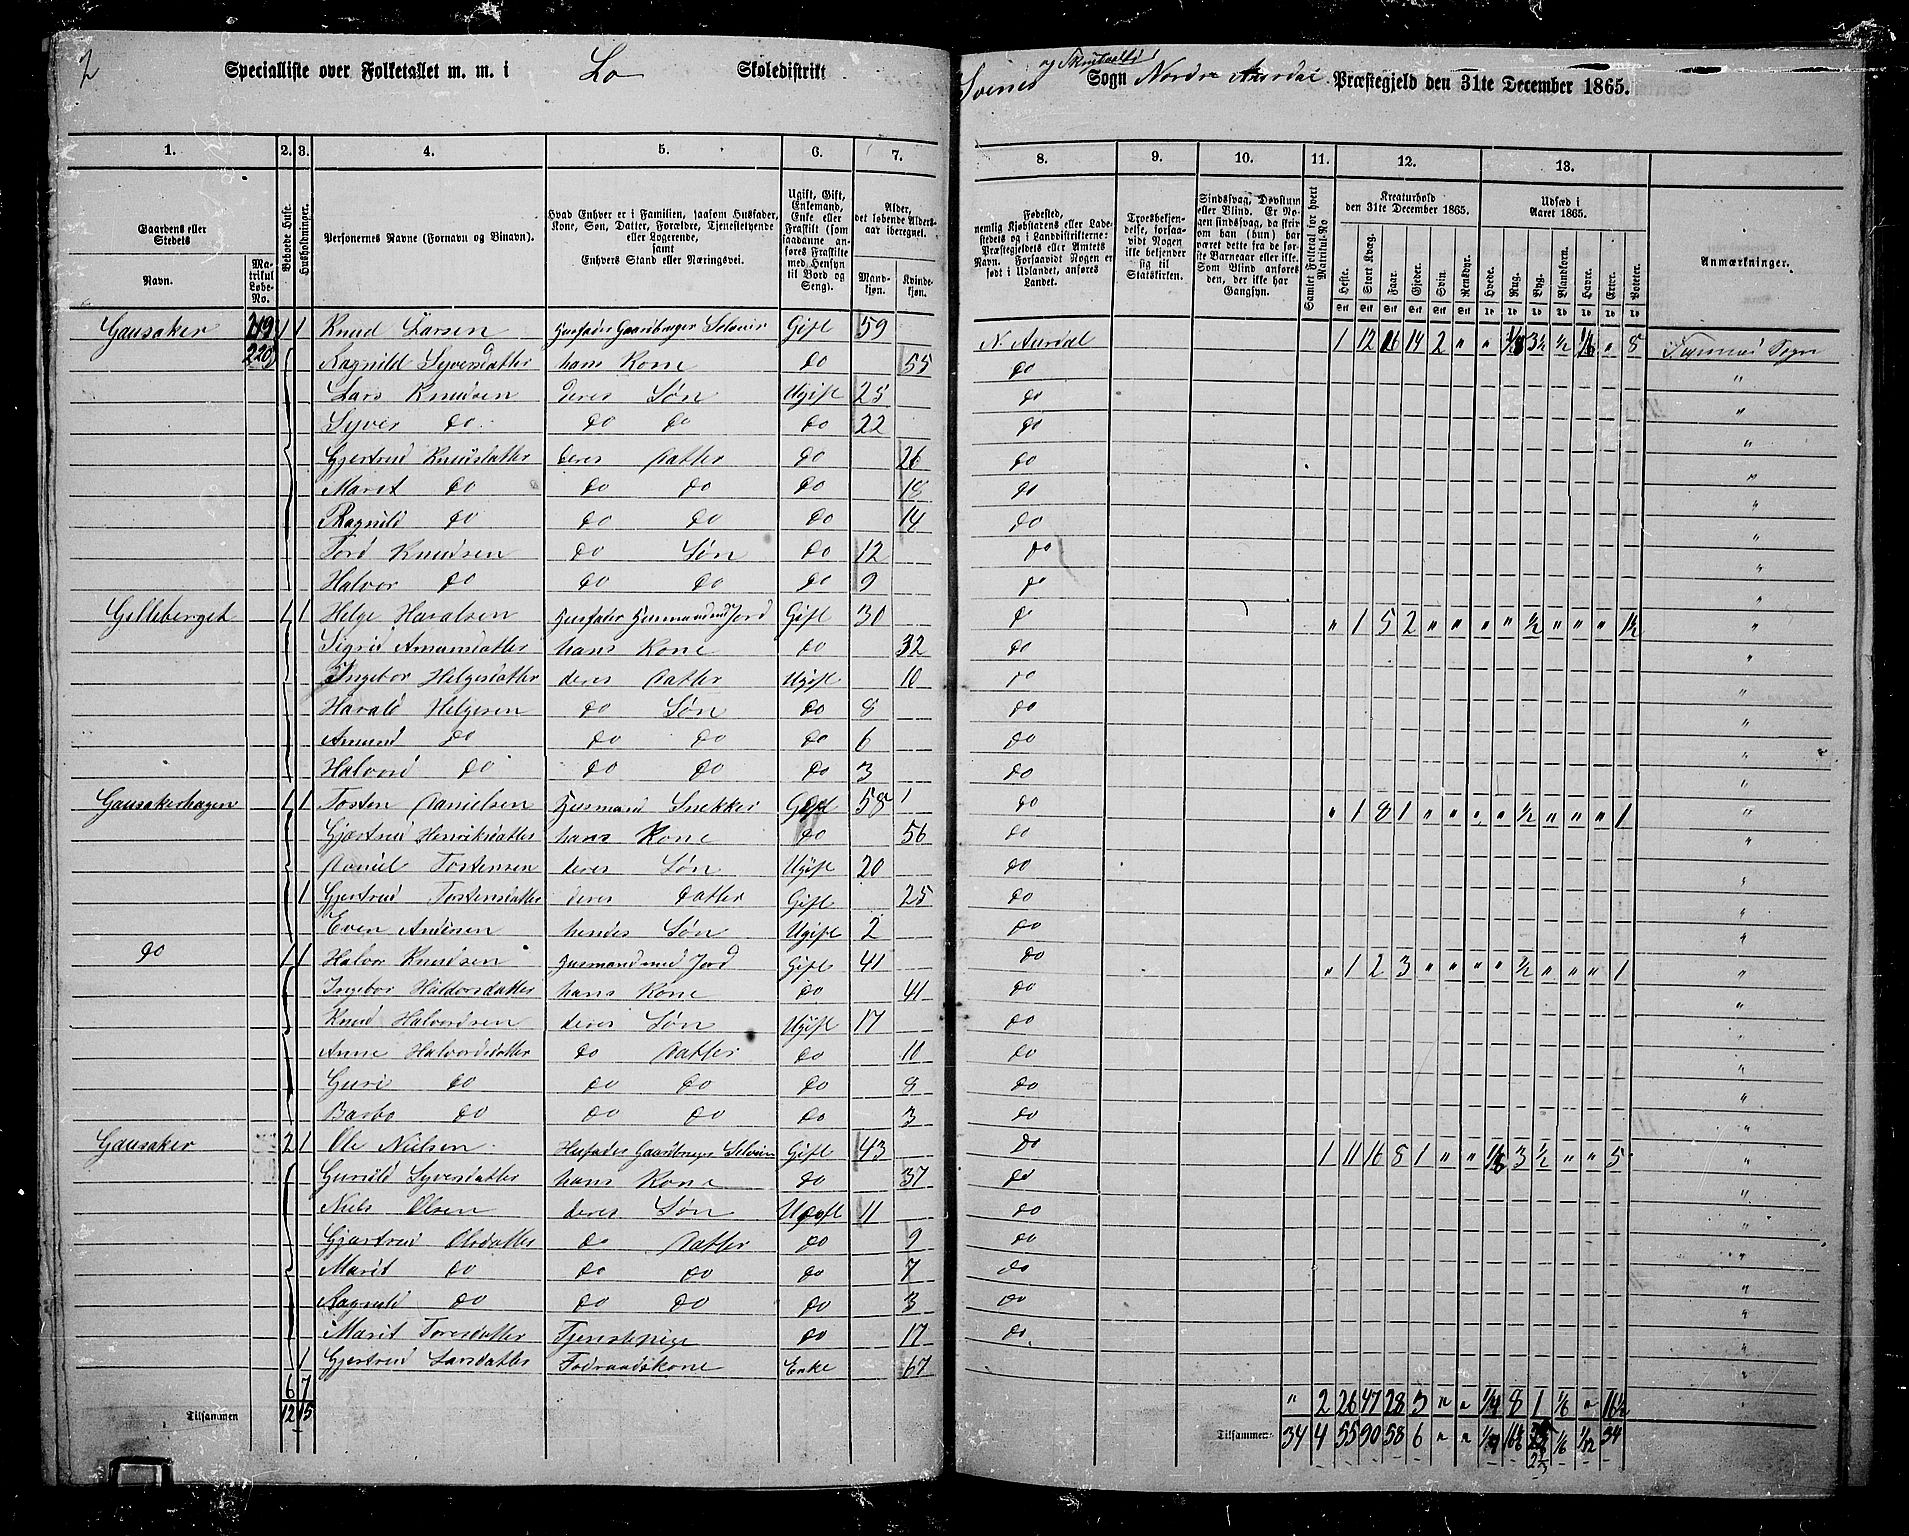 2
Specialliste over Folketallet m. m. i Lo Skoledistrikt
Svenes og Skrutvolds Sogn Nordre Aurdal Præstegjeld den 31te December 1865.
1. 2. 3. 4. 5. 6. 7. 8. 9. 10. 11. 12. 13.
Gaardens eller Stedets
Navn.
Matrikul Løbe-No.
Beboede Huse.
Husholdninger.
Personernes Navne (Fornavn og Binavn).
Hvad Enhver er i Familien, saasom Husfader, Kone, Søn, Datter, Forældre, Tjenestetyende eller Logerende, samt Enhvers Stand eller Næringsvei.
Ugift, Gift, Enkemand, Enke eller Fraskilt (som saadanne anføres Fraskilte med Hensyn til Bord og Seng).
Alder, det løbende Aldersaar iberegnet.
Mandkjøn. Kvindekjøn.
Fødested, nemlig Kjøbstadens eller Ladestedets og i Landdistrikterne: Præstegjeldets eller Amtets Navn. Forsaavidt Nogen er født i Udlandet, anføres Landet.
Troesbekjendelse, forsaavidt Nogen ikke bekjender sig til Statskirken.
Sindssvag, Døvstum eller Blind. Er Nogen sindssvag, da skriv om han (hun) har været dette fra de første Barneaar eller ikke. Som Blind anføres den, der ikke har Gangsyn.
Samlet Folketal for hvert Matrikul-No
Kreaturhold den 31te December 1865.
Heste. Stort Kvæg. Faar. Gjeder. Svin. Rensdyr.
Udsæd i Aaret 1865.
Hvede. Rug. Byg. Blandkorn. Havre. Erter. Poteter.
Anmærkninger.
Gausaker 219 1 1 Knud Larsen Husfader Gaardbruger Selveier Gift 59 N. Aurdal 1 12 16 14 2 " " 1/8 3½ ½ 1/6 " 8 Sogn
220 Ragnild Syversdatter hans Kone do 55 do "
Lars Knudsen deres Søn Ugift 25 do "
Syver do do do do 22 do "
Gjertrud Knudsdatter deres Datter do 26 do "
Marit do do do do 18 do "
Ragnild do do do do 14 do "
Tord Knudsen do Søn do 12 do "
Halvor do do do do 9 do "
Gilleberget 1 1 Helge Haralsen Husfader Husmand med Jord Gift 30 do " 1 5 2 " " " " ½ " " " 1½ "
Sigrid Amundsdatter hans Kone do 32 do "
Ingebor Helgesdatter deres Datter Ugift 10 do "
Harald Helgesen do Søn do 8 do "
Amund do do do do 6 do "
Halvord do do do do 3 do "
Gausakerhagen 1 1 Tosten Danielsen Husmand Snekker Gift 58 do " 1 8 1 " " " " ½ " " " 1 "
Gjertrud Henriksdatter hans Kone do 56 do "
Daniel Tostensen deres Søn Ugift 20 do "
1 Gjertrud Tostensdatter deres Datter Gift 25 do "
Even Andersen hendes Søn Ugift 2 do "
do 1 1 Halvor Knudsen Husmand med Jord Gift 41 do " 1 2 3 " " " " ½ " " " 1 "
Ingebor Haldorsdatter hans Kone do 41 do "
Knud Halvordsen deres Søn Ugift 17 do "
Anne Halvordsdatter do Datter do 10 do "
Guri do do do do 8 do "
Barbo do do do do 3 do "
Gausaker 2 1 Ole Nielsen Husfader Gaardbruger Selveier Gift 43 do 1 11 16 8 1 " " 1/8 3 ½ " " 5 "
Gunild Syversdatter hans Kone do 37 do "
Niels Olsen deres Søn Ugift 11 do "
Gjertrud Olsdatter do Datter do 9 do "
Marit do do do do 7 do "
Ragnild do do do do 3 do "
Marit Toresdatter Tjenestepige do 17 do "
1 Gjertrud Larsdatter Fodraadskone Enke 67 "
6 7 " 2 26 47 28 3 " " 1/4 8 1 1/6 " 16½
Tilsammen 12 15 Tilsammen 34 4 55 90 58 6 " " 1/6 1/12 34